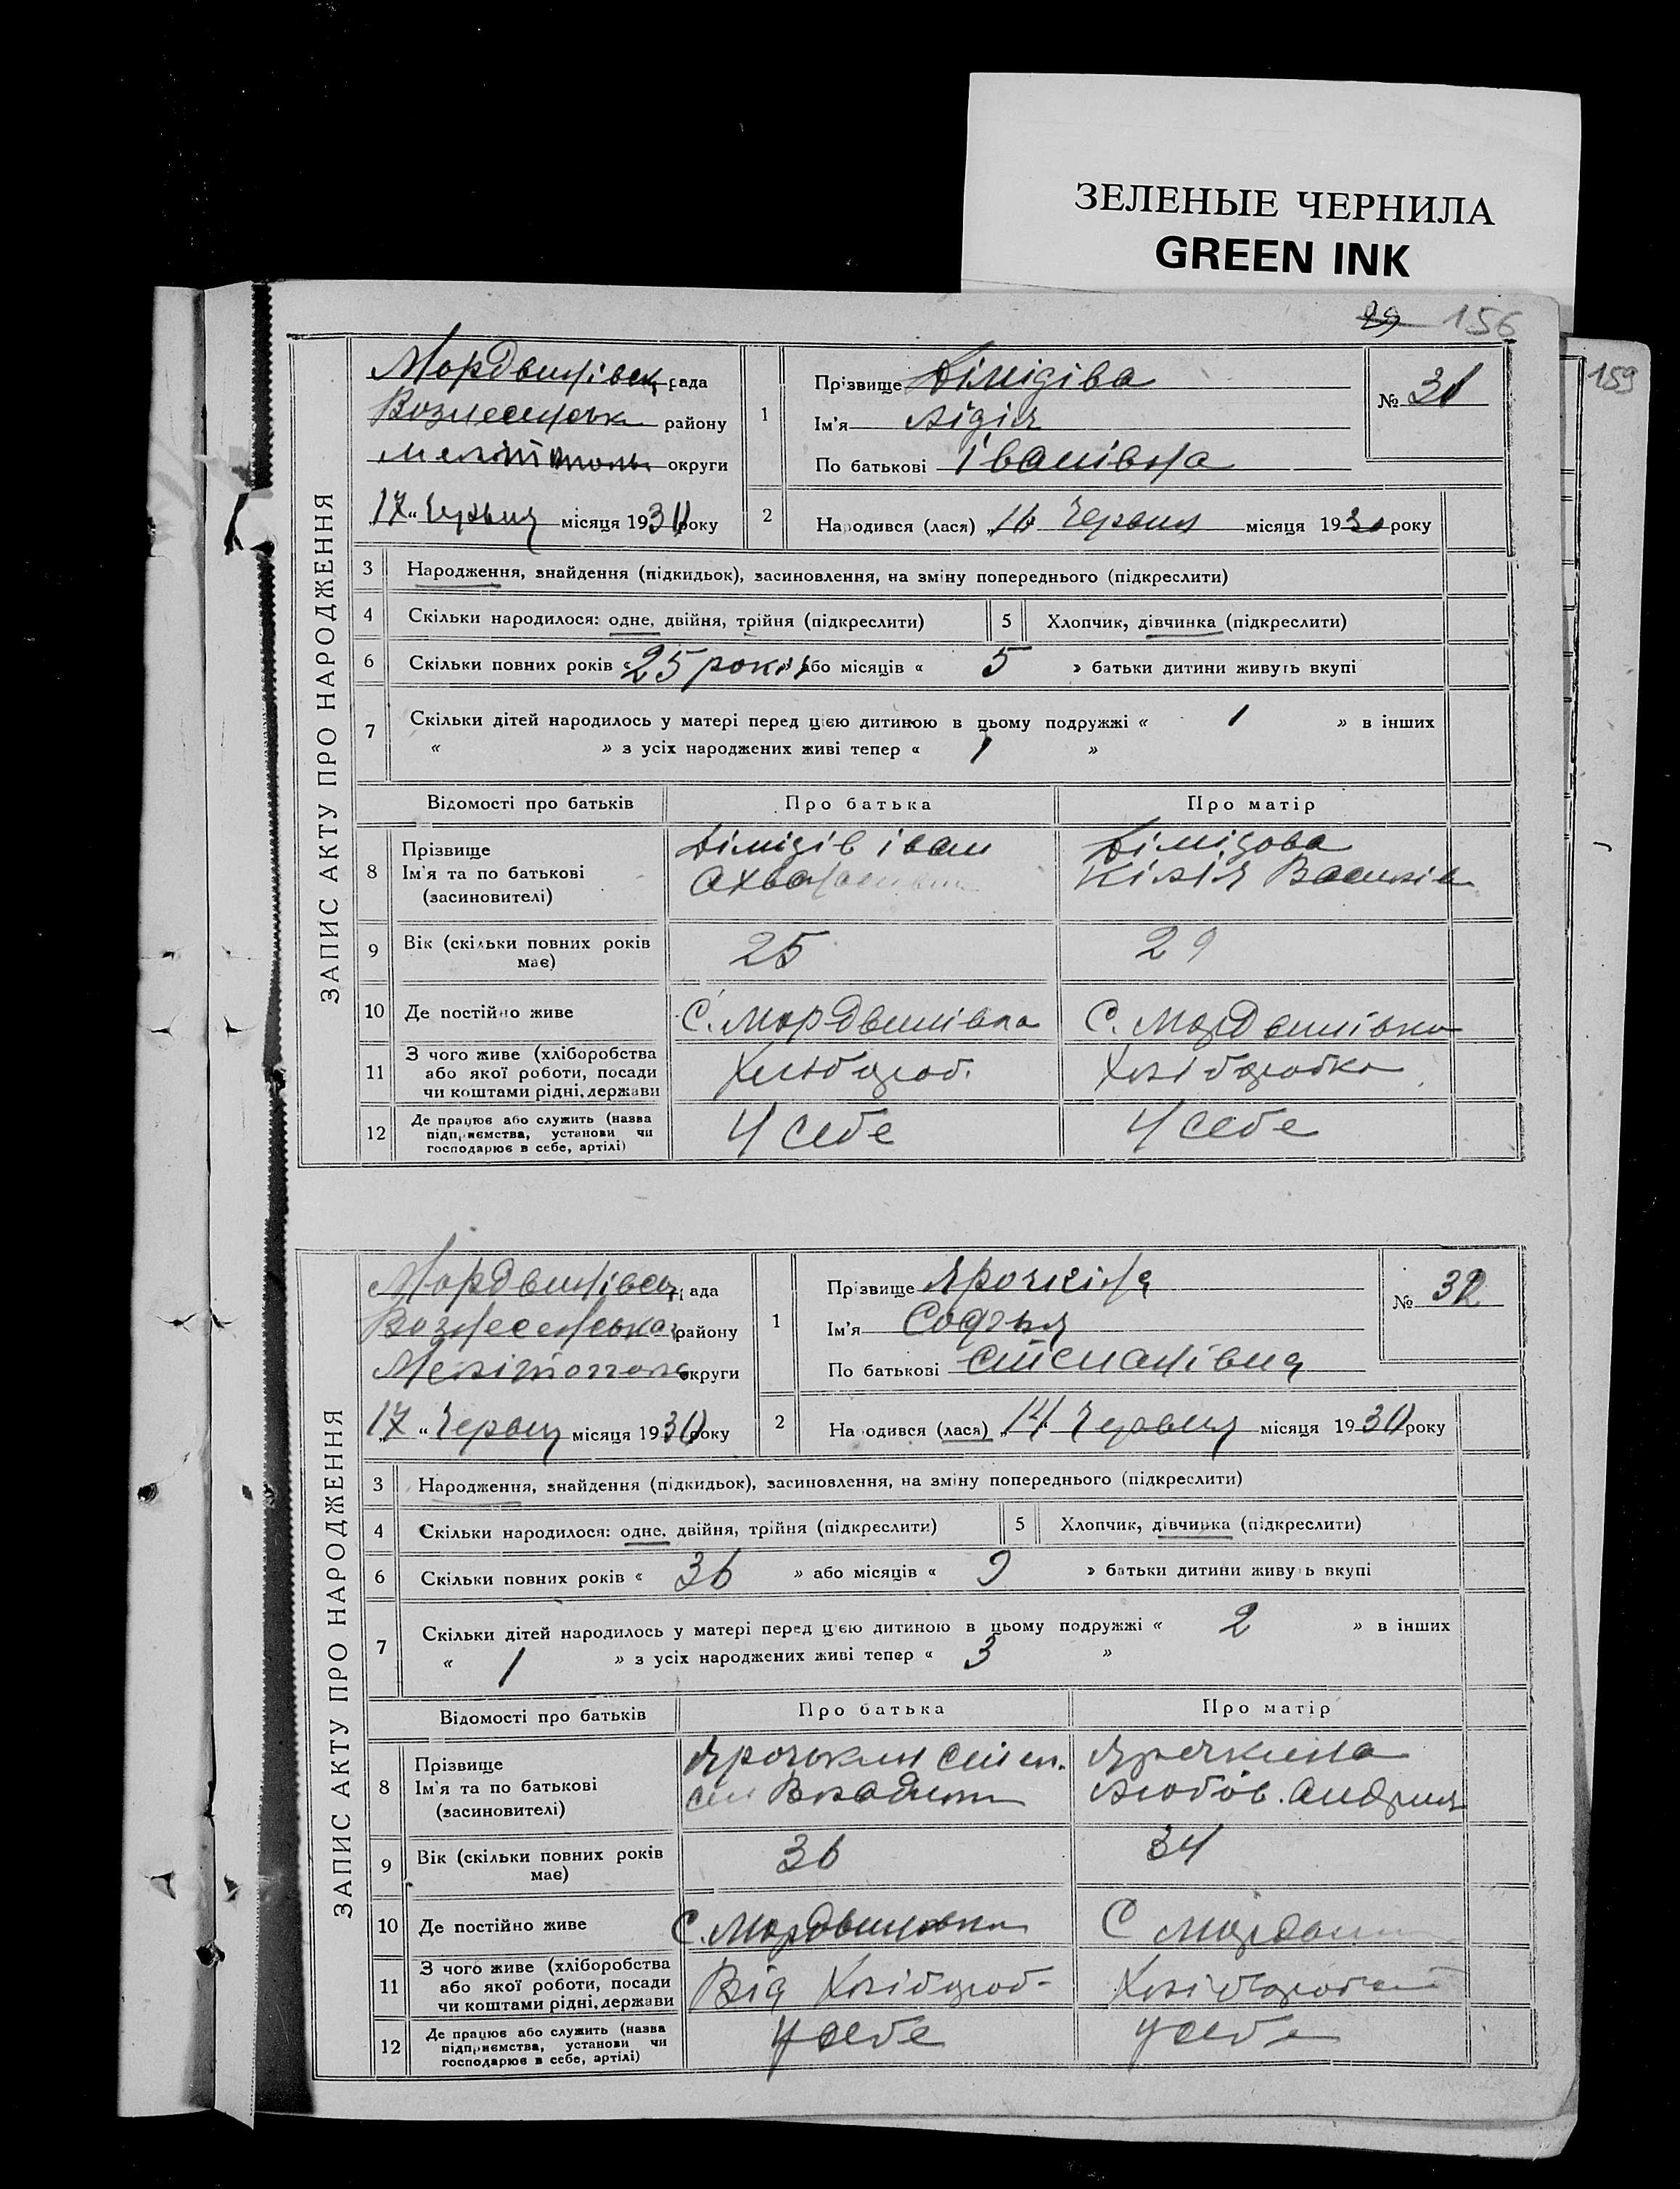 ЗЕЛЕНЫЕ ЧЕРНИЛА
GREEN INK
29 156
159
ЗАПИС АКТУ ПРО НАРОДЖЕННЯ
Мордвинівськ рада
Вознесенськ району
Мелітополь округи
„17“ Червня місяця 1930 року
1 Прізвище Дімідіва
Ім'я Лідія
По батькові Іванівна
№ 31
2 Народився (лася) „16 Червня місяця 1930 року
3 Народження, знайдення (підкидьок), засиновлення, на зміну попереднього (підкреслити)
4 Скільки народилося: одне, двійня, трійня (підкреслити) 5 Хлопчик, дівчинка (підкреслити)
6 Скільки повних років « 25 років » або місяців « 5 » батьки дитини живуть вкупі
7 Скільки дітей народилось у матері перед цією дитиною в цьому подружжі « 1 » в інших
« » з усіх народжених живі тепер « 1 »
Відомості про батьків Про батька Про матір
8 Прізвище Ім'я та по батькові (засиновителі)
Дімідів Іван
Дімідова
Кілія Василів
9 Вік (скільки повних років має) 25 29
10 Де постійно живе С. Мордвинівка С. Мордвинівка
11 З чого живе (хліборобства або якої роботи, посади чи коштами рідні, держави Хлібороб. Хліборобка
12 Де працює або служить (назва підприємства, установи чи господарює в себе, артілі) У себе У себе
ЗАПИС АКТУ ПРО НАРОДЖЕННЯ
Мордвинівськ рада
Вознесенського району
Мелітополь округи
„17“ Червня місяця 1930 року
1 Прізвище Ярочкіна
Ім'я Софья
По батькові Степанівна
№ 32
2 Народився (лася) „14“ Червня місяця 1930 року
3 Народження, знайдення (підкидьок), засиновлення, на зміну попереднього (підкреслити)
4 Скільки народилося: одне, двійня, трійня (підкреслити) 5 Хлопчик, дівчинка (підкреслити)
6 Скільки повних років « 36 » або місяців « 9 » батьки дитини живуть вкупі
7 Скільки дітей народилось у матері перед цією дитиною в цьому подружжі « 2 » в інших
« 1 » з усіх народжених живі тепер « 3 »
Відомості про батьків Про батька Про матір
8 Прізвище Ім'я та по батькові (засиновителі)
Ярочкин
Ярочкина
Любов. Андрия
9 Вік (скільки повних років має) 36 34
10 Де постійно живе С. Мордвиновка С
11 З чого живе (хліборобства або якої роботи, посади чи коштами рідні, держави Від Хлібороб- Хліборобка
12 Де працює або служить (назва підприємства, установи чи господарює в себе, артілі) У себе У себе